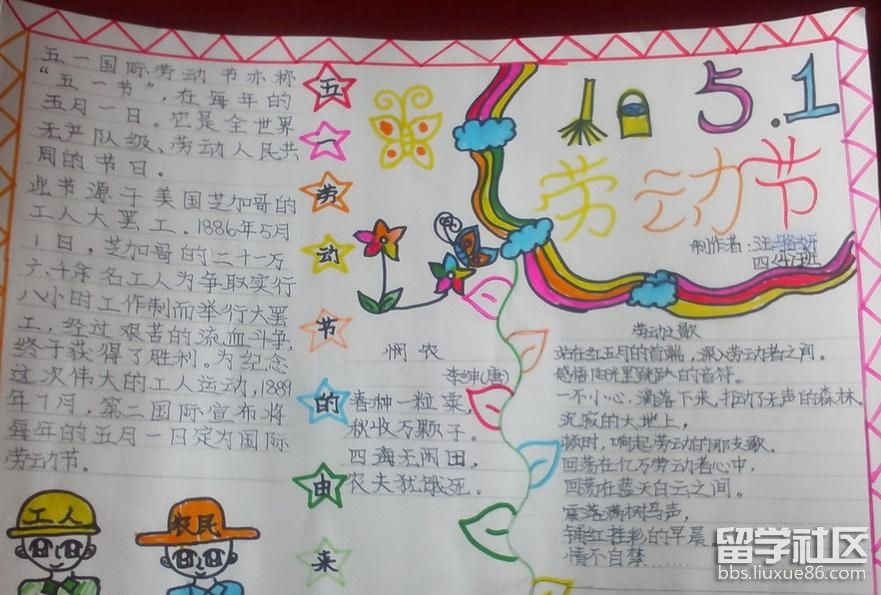 五一国际劳动节亦称
“五一节”，在每年的
五月一日。它是全世界
无产队级、劳动人民共
同的节日。
此节源于美国芝加哥的
工人大罢工。1886年5月
1日，芝加哥的二十一万
六千余名工人为争取实行
八小时工作制而举行大罢
工，经过艰苦的流血斗争，
终于获得了胜利。为纪念
这次伟大的工人运动，1889
年7月，第二国际宣布将
每年的五月一日定为国际
劳动节。
工人
农民
五一劳动节的由来
5.1
劳动节
制作者：汪
四 班
悯农
李绅(唐)
春种一粒粟，
秋收万颗子。
四海无闲田，
农夫犹饿死。
劳动之歌
站在红五月的首端，深入劳动者之间。
感悟阳光里跳跃的音符。
一不小心，滴落下来，打动了无声的森林
沉寂的大地上，
顿时，响起劳动的那支歌。
回荡在亿万劳动者心中，
回荡在蓝天白云之间。
震落满树鸟声，
铺红挂彩的早晨
情不自禁……
留学社区
bbs.liuxue86.com